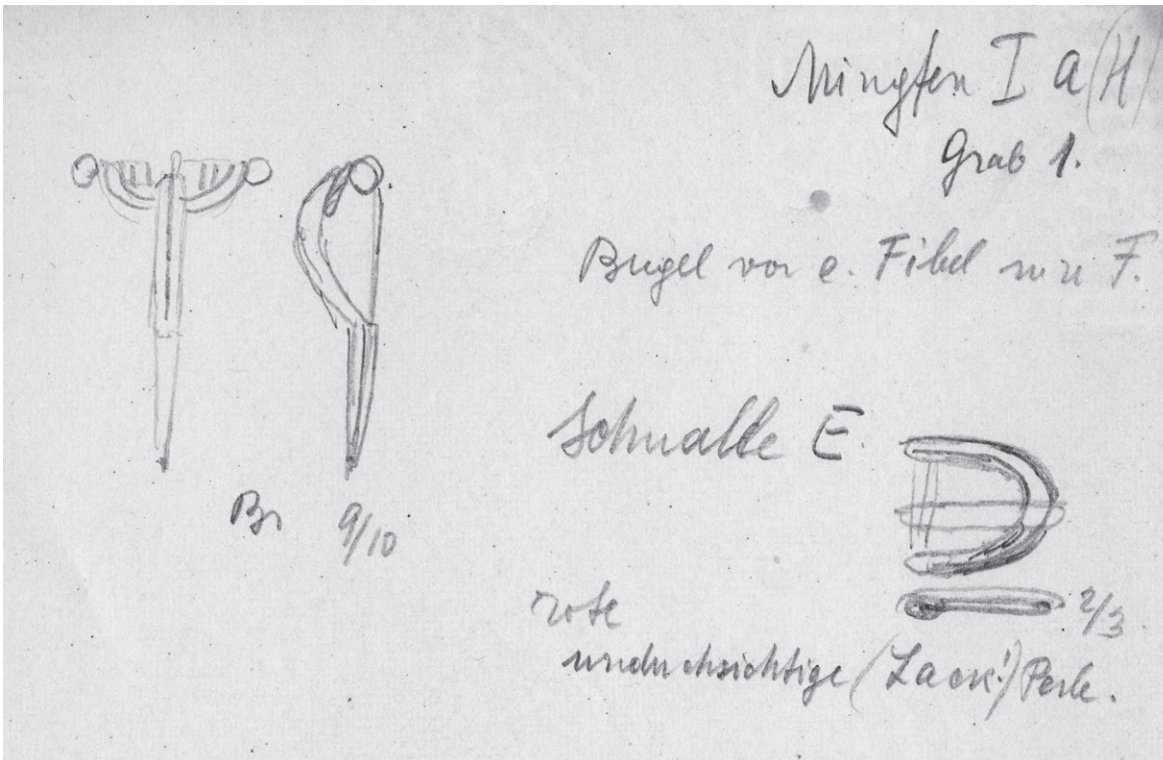 Mingfen I a (H)
Grab 1.
Bügel von e. Fibel wie F.
Schnalle E.
Br 9/10
2/3
rote
undurchsichtige (Lack!) Perle.